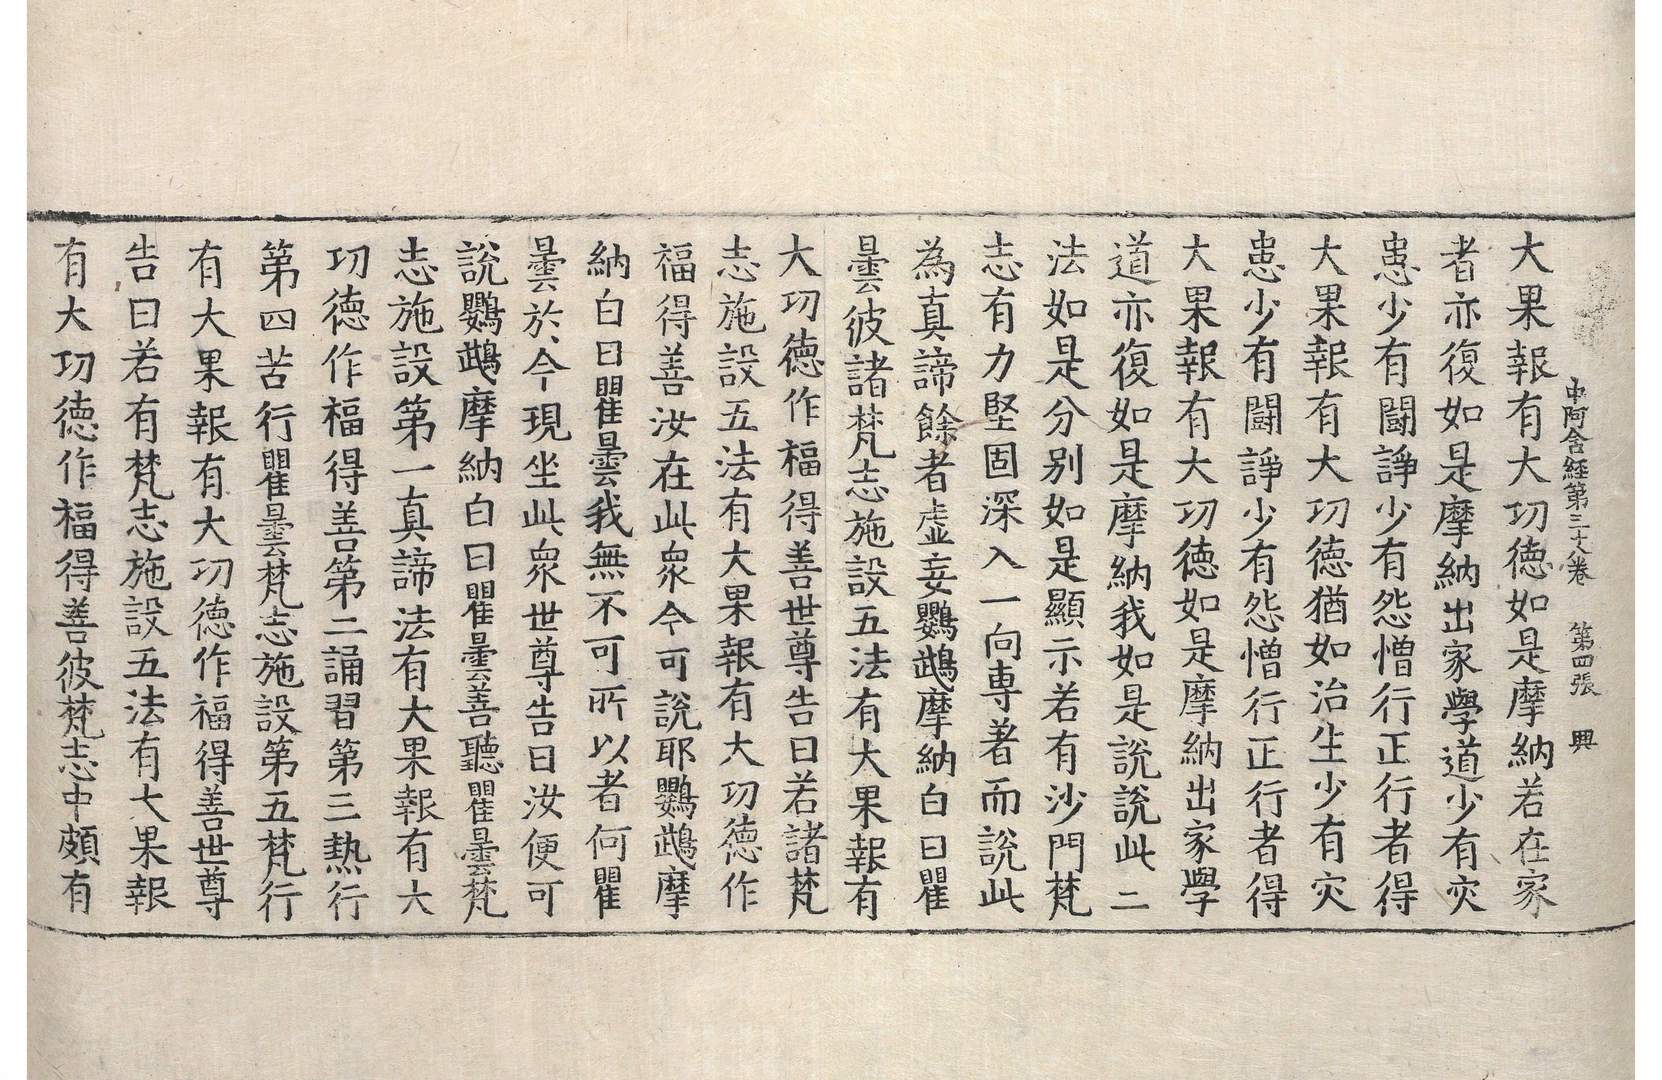 中阿含経第三十八卷 第四張 興
大果報有大功德如是摩納若在家
者亦復如是摩納出家學道少有灾
患少有鬪諍少有怨憎行正行者得
大果報有大功德猶如治生少有灾
患少有鬪諍少有怨憎行正行者得
大果報有大功德如是摩納出家學
道亦復如是摩納我如是說說此二
法如是分別如是顯示若有沙門梵
志有力堅固深入一向専著而說此
為真諦餘者虛妄鸚鵡摩納白曰瞿
曇彼諸梵志施設五法有大果報有
大功德作福得善世尊告曰若諸梵
志施設五法有大果報有大功德作
福得善汝在此衆今可說耶鸚鵡摩
納白曰瞿曇我無不可所以者何瞿
曇於今現坐此衆世尊告曰汝便可
說鸚鵡摩納白曰瞿曇善聽瞿曇梵
志施設第一真諦法有大果報有大
功德作福得善第二誦習第三熱行
第四苦行瞿曇梵志施設第五梵行
有大果報有大功德作福得善世尊
告曰若有梵志施設五法有大果報
有大功德作福得善彼梵志中頗有